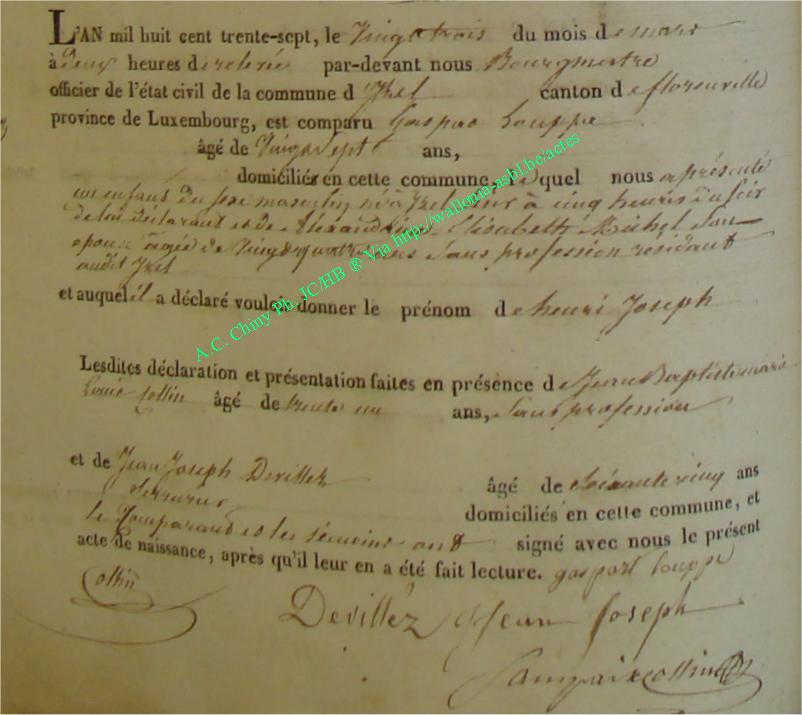 L'AN mil huit cent trente-sept, le Vingt trois du mois de mars
à deux heures de relevée par-devant nous Bourgmestre
officier de l'état civil de la commune d'Izel canton de florenville
province de Luxembourg, est comparu Gaspar Louppe
âgé de Vingt sept ans,
domiciliés en cette commune, le quel nous a présenté
un enfant du sexe masculin né à Izel hier à cinq heures du soir
de lui Déclarant et de Elisabeth Michel Son
épouse agée de Vingt quatre ans Sans profession résidant
audit Izel
et auquel il a déclaré vouloir donner le prénom de henri Joseph
Lesdites déclaration et présentation faites en présence de Jean Baptiste marie
Louis Collin âgé de trente un ans, Sans profession
et de Jean Joseph Devillez âgé de Soixante cinq ans
Serrurier domiciliés en cette commune, et
le Comparant et les témoins ont signé avec nous le présent
acte de naissance, après qu'il leur en a été fait lecture. gaspart Louppe
Collin
Devillez Jean Joseph
Collin
A.C. Chiny Ph. JC/HB ® Via http://wallonia-asbl.be/actes